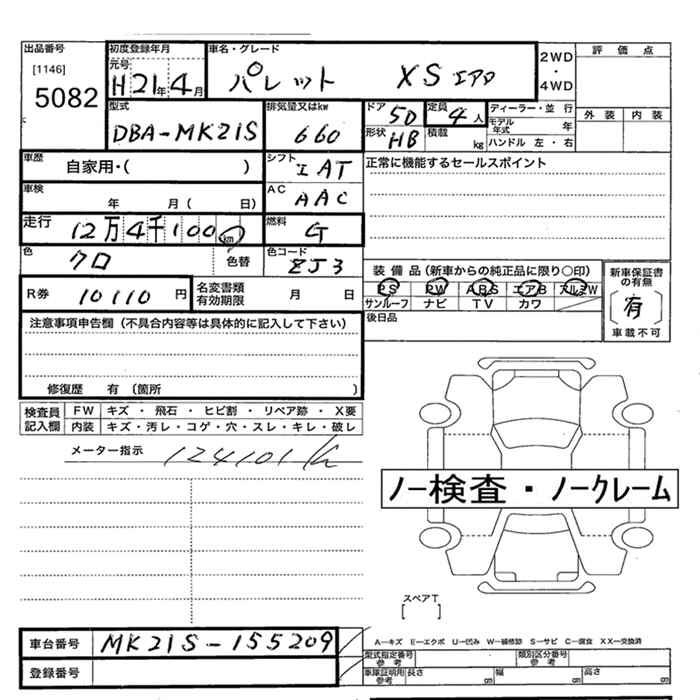 出品番号 初度登録年月 車名・グレード 評価点
[1146] 元号 2WD
5082 H21年4月 パレット XS エアロ ・ 4WD
型式 排気量又はkw ドア 5D 定員 4人 ディーラー・並行 外装 内装
DBA-MK21S 660 形状 HB 積載 kg モデル年式 年
ハンドル 左・右
車歴 自家用・( ) シフト IAT 正常に機能するセールスポイント
車検 年 月( 日) AC AAC
走行 12万4千100 km 燃料 G
色 クロ 色替 色コード ZJ3 装備品(新車からの純正品に限り○印) 新車保証書の有無
PS PW ABS エアB アルミW 〔有〕
R券 10110円 名変書類有効期限 月 日 サンルーフ ナビ TV カワ 車載不可
注意事項申告欄(不具合内容等は具体的に記入して下さい) 後日品
修復歴 有 (箇所 )
検査員記入欄 FW キズ ・ 飛石 ・ ヒビ割 ・ リペア跡 ・ X要
内装 キズ・汚レ・コゲ・穴・スレ・キレ・破レ
メーター指示 124101k
ノー検査・ノークレーム
スペアT
[ ]
車台番号 MK21S-155209 A―キズ E―エクボ U―凹み W―補修跡 S―サビ C―腐食 XX―交換済
型式指定番号参考 類別区分番号参考
登録番号 車庫証明用参考 長さ 幅 高さ